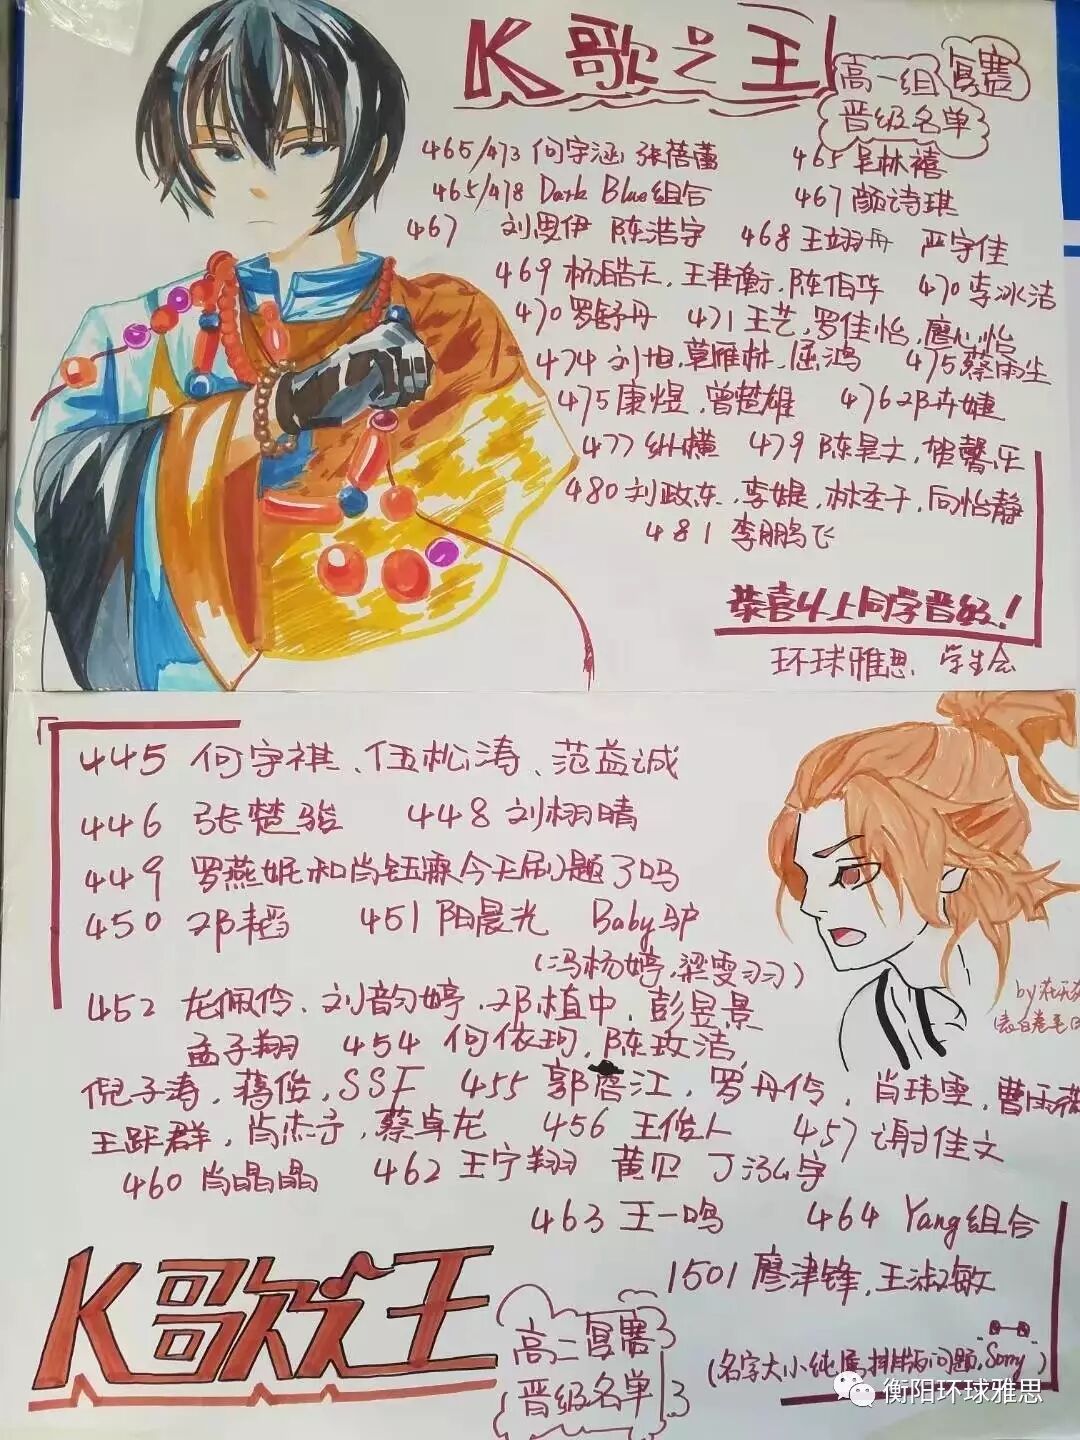 K歌之王
高一组复赛
晋级名单
465/473 何宇涵 张蓓蕾 465 吴林禧
465/478 Dark Blue组合 467 颜诗琪
467 刘思伊 陈浩宇 468 王翊丹 严宇佳
469 杨皓天, 陈伯华 470 李冰洁
470 罗舒丹 471 王艺, 罗佳怡, 廖心怡
474 刘旭, 莫雁林, 屈鸿 475 蔡雨尘
475 康煜, 曾楚雄 476 邓卉婕
477 纵横 479 贺馨乐
480 刘政东, 李媞, 向怡静
481 李鹏飞
恭喜以上同学晋级!
环球雅思 学生会
445 何宇祺、伍松涛、范益诚
446 张楚骏 448 刘栩晴
449 罗燕妮和肖钰霖今天刷题了吗
450 邓韬 451 阳晨光 Baby驴
(冯杨婷, 梁雯羽)
452 龙佩伶, 刘韵婷, 邓植中, 彭昱景
孟子翔 454 何依珂, 陈玫洁,
倪子涛, 蒋俊, SSF 455 郭唐江, 罗丹伶, 肖玮雯, 曹雨薇
王跃群, 肖杰予, 蔡卓龙 456 王俊人 457 谢佳文
460 肖晶晶 462 王宁翔 黄贝 丁泓宇
463 王一鸣 464 Yang组合
1501 廖津锋, 王淑敏
(名字大小纯属排版问题, Sorry)
K歌之王
高二复赛
晋级名单
by
衡阳环球雅思